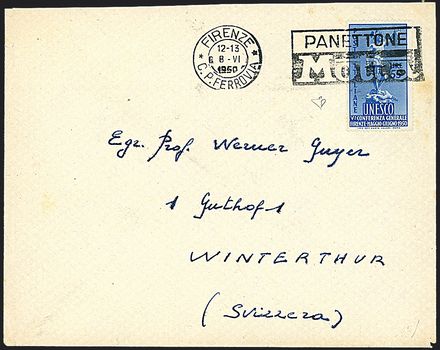 FIRENZE
12-13
8-VI
1950
C.P. FERROVIA
PANETTONE
UNESCO
Vª CONFERENZA GENERALE
FIRENZE-MAGGIO-GIUGNO 1950
Egr. Prof. Werner Guyer
1 Guthof 1
WINTERTHUR
(Svizzera)